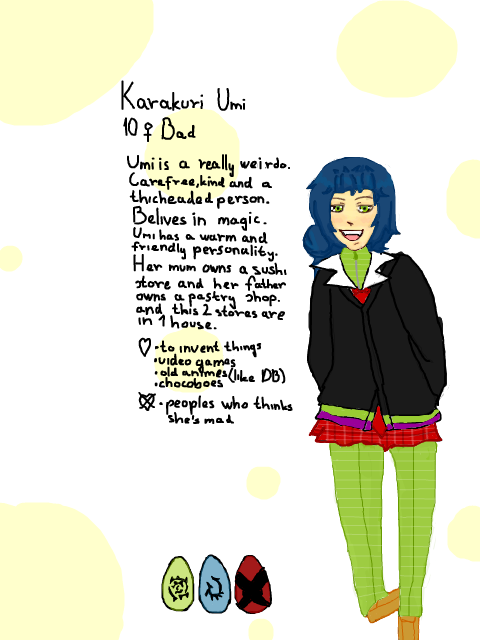 Karakuri Umi
10 ♀ Bad
Umi is a really weirdo.
Carefree, kind and a
thicheaded person.
Belives in magic.
Umi has a warm and
friendly personality.
Her mum owns a sushi
store and her father
owns a pastry shop.
and this 2 stores are
in 1 house.
♡ • to invent things
• video games
• old animes (like DB)
• chocoboes
• peoples who thinks
she's mad